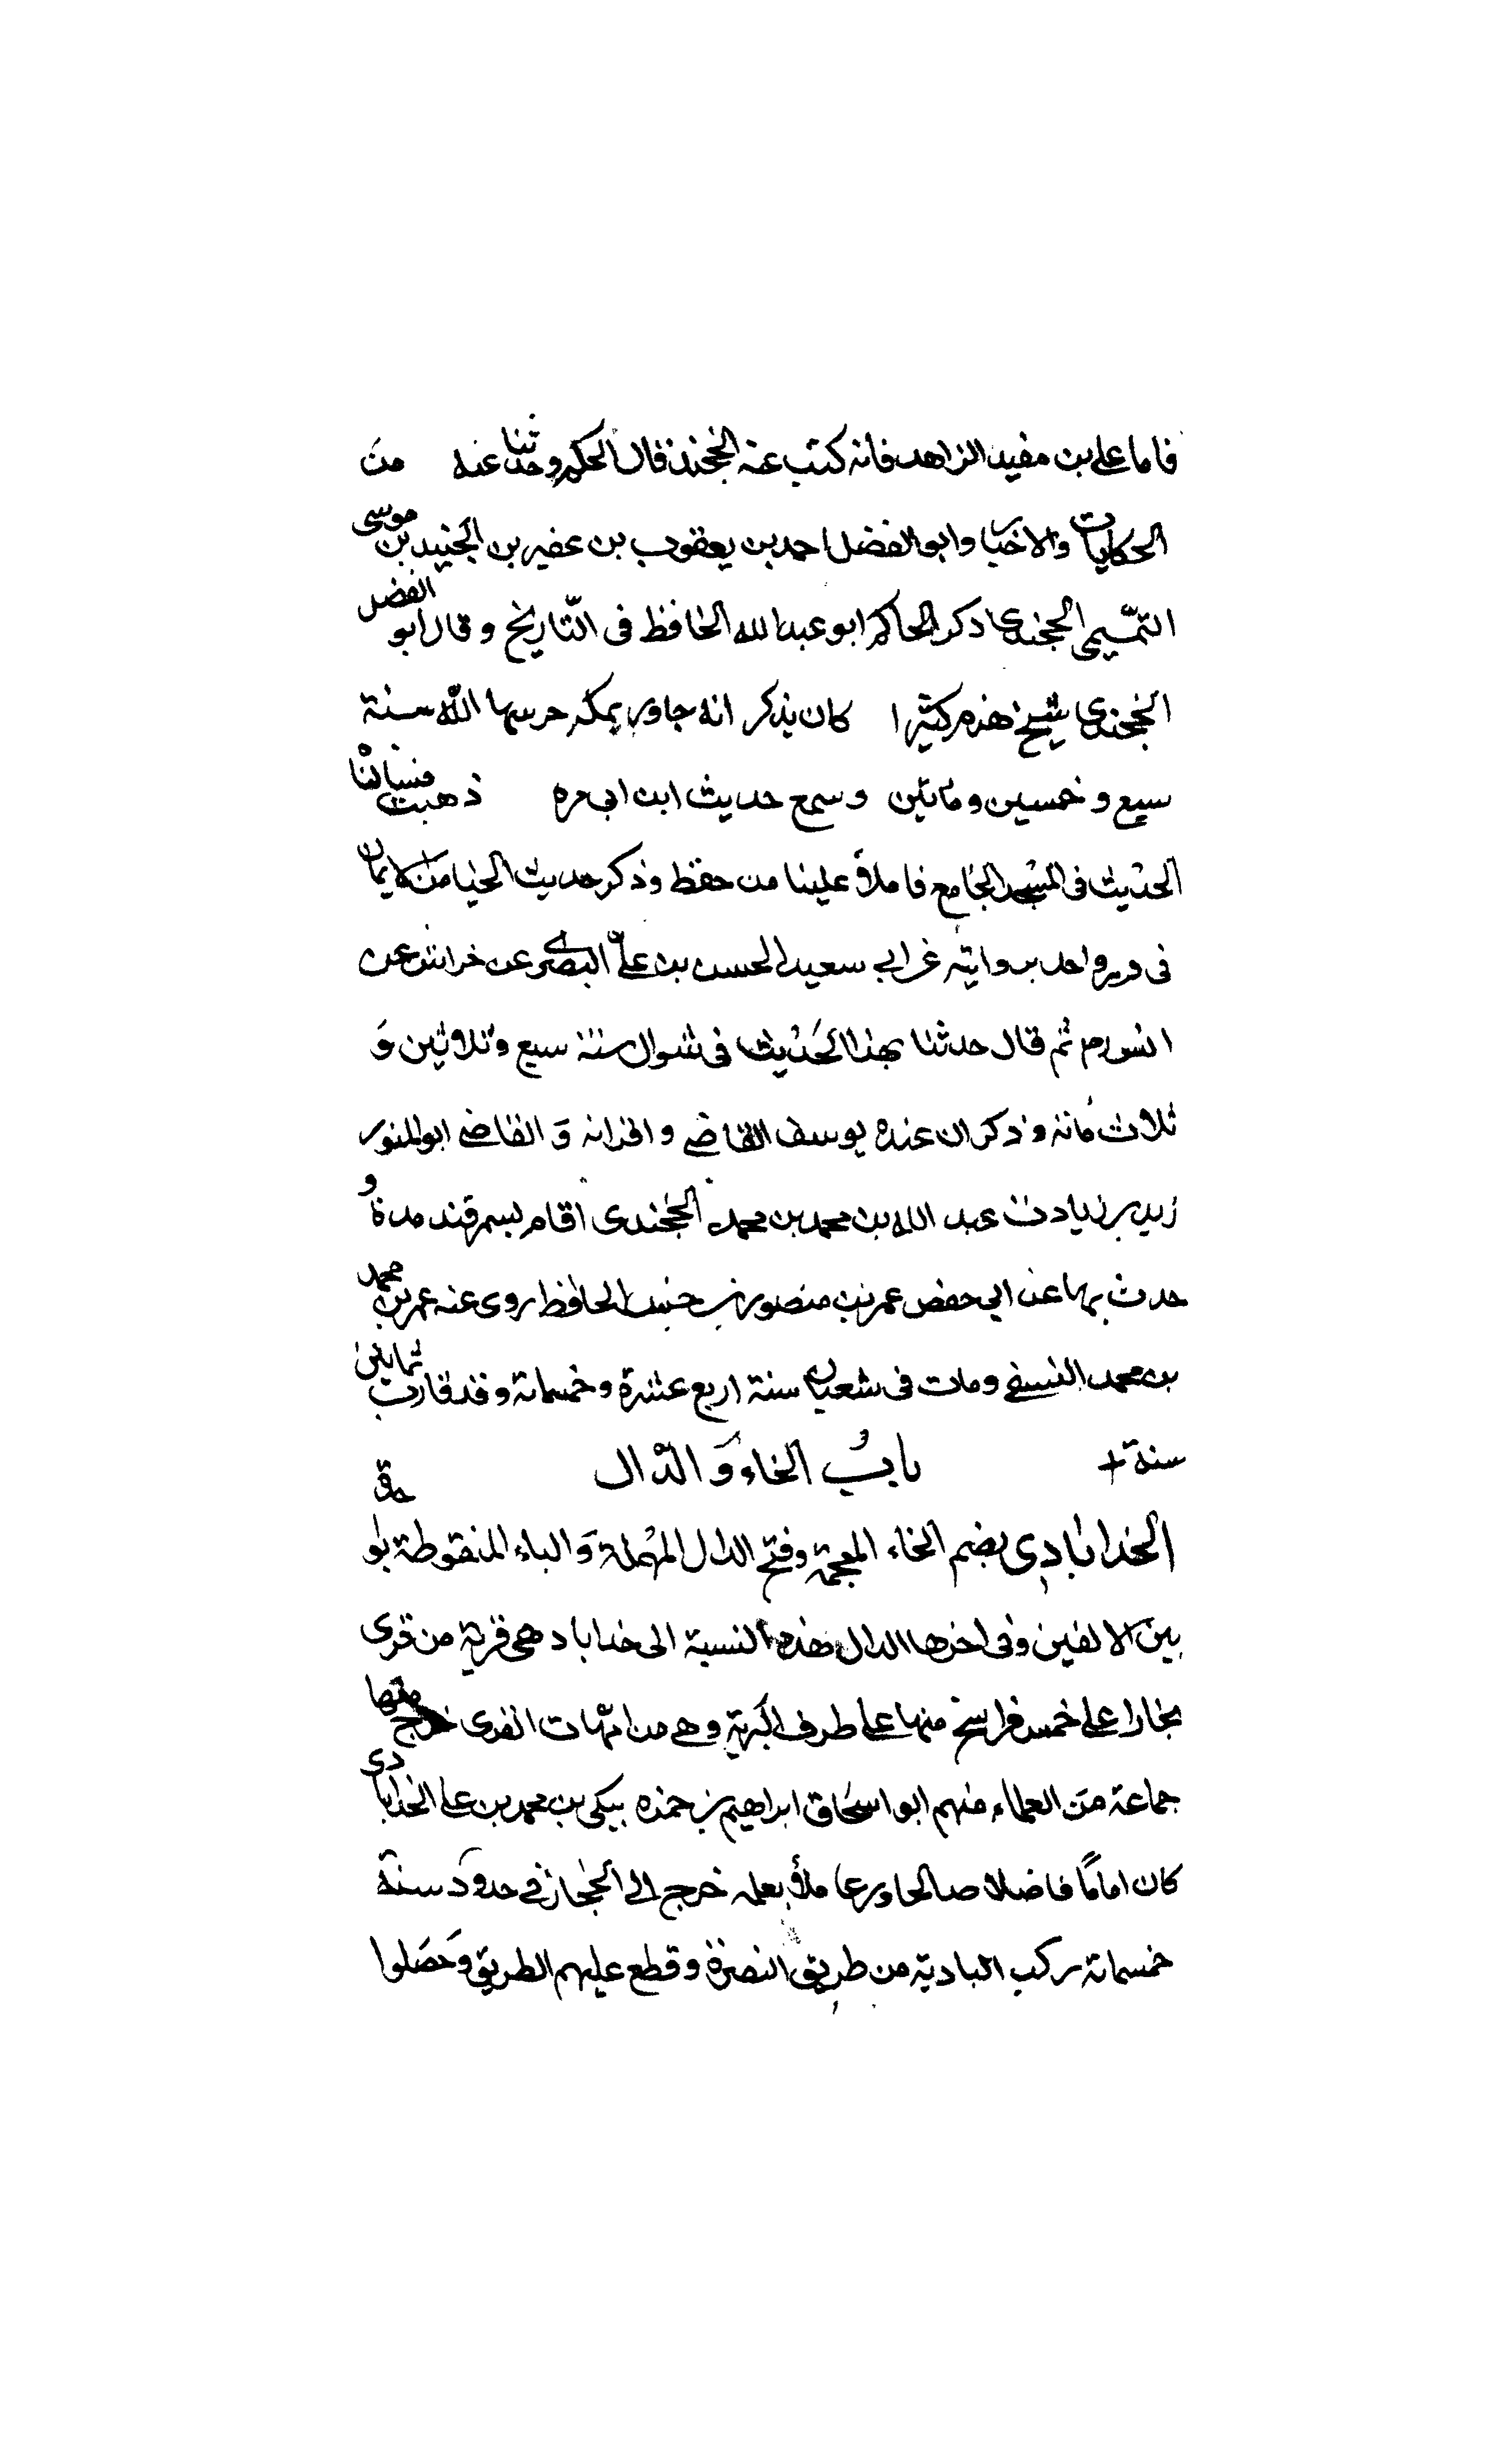 فاما علي بن مفيد الزاهد فانه كتب عنه الخجند قال الحكم وحدثنا عنه من
الحكايات والاخبار وابو الفضل احمد بن يعقوب بن عفير بن الجنيد بن موسى
التميمي الخجندي ذكر الحاكم ابو عبد الله الحافظ في التاريخ وقال ابو الفضل
الخجندي شيخ هذم كثيرا كان يذكر انه جاور بمكه حرسها الله سنة
سبع و خمسين وماتين وسمع حديث ابن ابي مره ذهبت فسالنا
الحديث في المسجد الجامع فاملأ علينا من حفظ وذكر حديث الحيا من الايمان
في واحد بروايته عن ابي سعيد الحسن بن علي البصري عن خراش عن
انس ثم قال حدثنا بهذا الحديث في شوال سنة سبع وثلاثين و
ثلاث مائة وذكر ان عنده يوسف القاضي و اقرانه و القاضي ابو المنور
زيد بن عبد الله بن محمد بن محمد الخجندي اقام بسمرقند مدة و
حدث بها عن ابي حفص عمر بن منصور بن خنب الحافظ روى عنه عمر بن محمد
بن محمد النسفي ومات في شعبان سنة اربع عشرة وخمسماة وقد قارب ثمانين
سنة باب الخاء و الدال
الخداباد‍ي بضم الخاء المعجمة وفتح الدال المهملة و الباء المنقوطة بواحدة
بين الالفين وفي اخرها الدال هذه النسبة الى خداباد هي قرية من قرى
بخارا على خمس فراسخ منها على طرف البرية وهي من امهات القرى خرج منها
جماعة من العلماء منهم ابو اسحاق ابراهيم بن حمزه بن يكي بن محمد بن على الخدابادي
كان اماما فاضلا صالحا ورعا عاملا بعلمه خرج الى الحجاز في حدود سنة
خمسماة ركب البادية من طريق البصرة وقطع عليهم الطريق وحصلوا